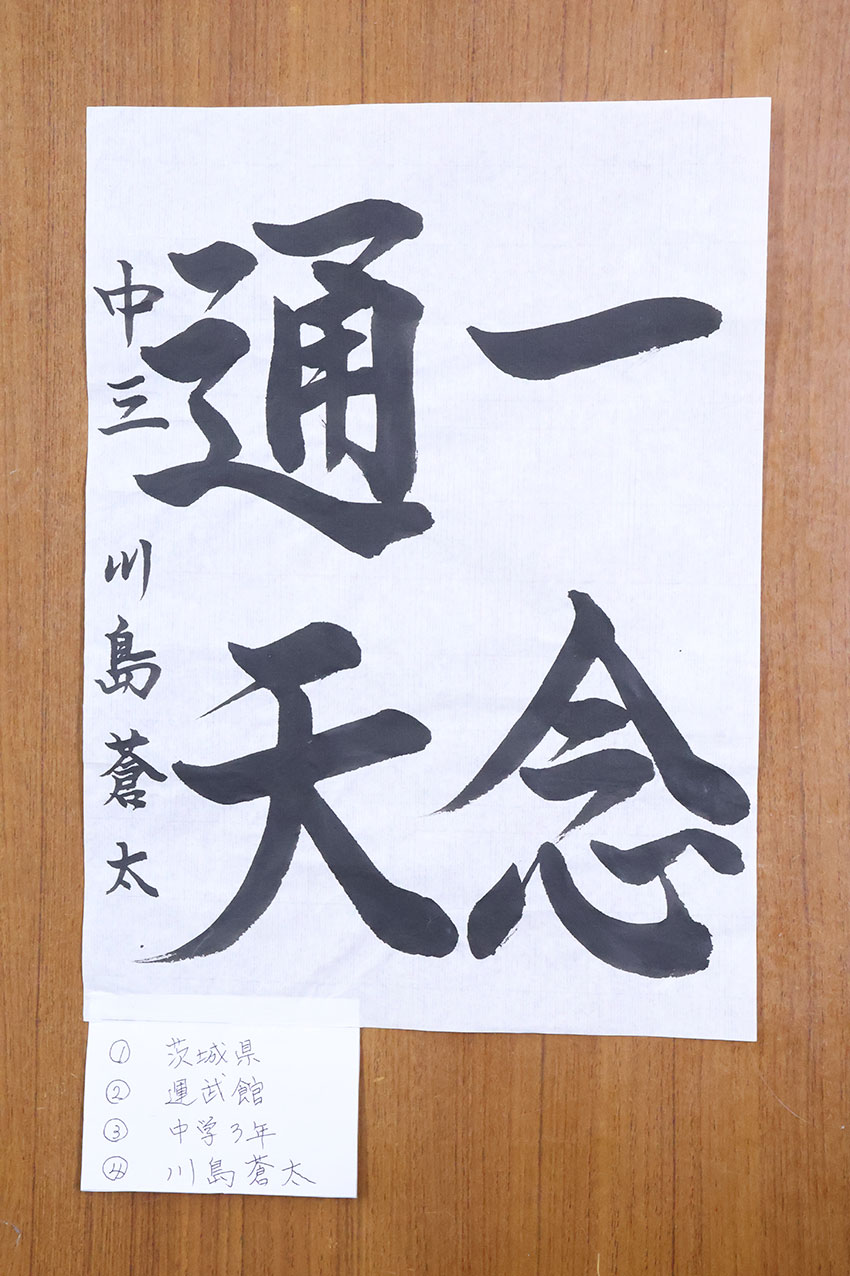 一念
通天
中三 川島蒼太
① 茨城県
② 運武館
③ 中学3年
④ 川島蒼太